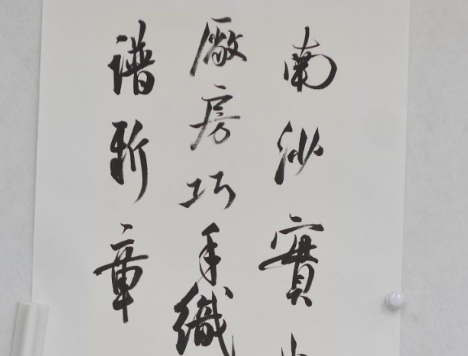 南沙實
廠房巧手織
譜新章